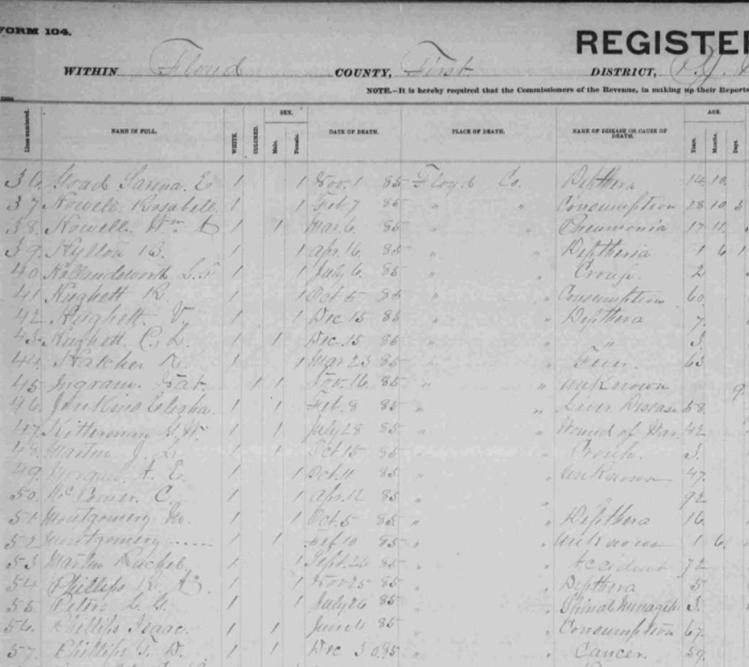 FORM 104.
REGISTER
WITHIN Floyd COUNTY, First DISTRICT,
NOTE.—It is hereby required that the Commissioners of the Revenue, in making up their Reports
Lines numbered. NAME IN FULL. WHITE. COLORED. SEX. Male. Female. DATE OF DEATH. PLACE OF DEATH. NAME OF DISEASE OR CAUSE OF DEATH. AGE. Years. Months. Days.
36 Goad Sarina E 1 1 Nov. 1 85 Floyd Co. Depthera 14 10
37 Howell Rosabell 1 1 Feb 7 85 " " Consumption 28 10
38 Howell Wm A 1 1 Mar. 6 85 " " Pneumonia 17 11
39 Hylton B. 1 1 Apr. 16 85 " " Deptheria 1 6 1
40 Hollandsworth 1 1 July 6 85 " " Croup 2
41 Hughett R. 1 1 Oct 5 85 " " Consumption 60
42 Hughett V. 1 1 Dec 15 85 " " Depthera 7
43 Hughett C. D. 1 1 Dec. 15 85 " " " 3
44 Hatcher 1 1 Mar 23 85 " " Fever 63
45 Ingram 1 1 Nov. 16 85 " " unknown 9
46 Jenkins Eligha 1 1 Feb. 8 85 " " Liver Disease 58
47 Kitterman 1 1 July 28 85 " " Wound of War 42
48 Martin J. L. 1 1 Oct 15 85 " " Croup 3
49 A. E. 1 1 Oct 11 85 " " unknown 47
50 C. 1 1 Apr. 12 85 " " 92
51 Montgomery 1 1 Oct. 5 85 " " Depthera 16
52 Montgomery ----- 1 1 10 85 " " unknown 1 6
53 Martin Rachel 1 1 Sept. 85 " " Accident 72
54 Phillips 1 1 Nov 25 85 " " Depthera 5
55 Peters 1 1 July 26 85 " " Spinal 3
56 Phillips Isaac 1 1 June 85 " " Consumption 67
57 Phillips D. 1 1 Dec 3 85 " " Cancer 59